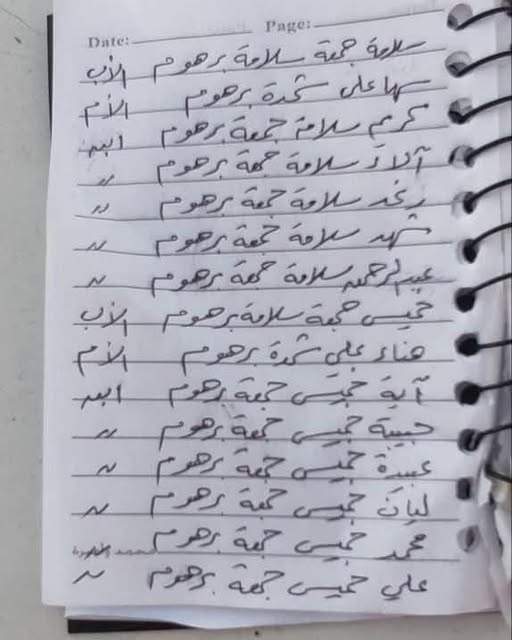 Date: Page:
سلامة جمعة سلامة برهوم الأب
سها علي شحدة برهوم الأم
كريم سلامة جمعة برهوم ابنه
آلاء سلامة جمعة برهوم "
رغد سلامة جمعة برهوم "
شهد سلامة جمعة برهوم "
عبدالرحمن سلامة جمعة برهوم "
خميس جمعة سلامة برهوم الأب
هناء علي شحدة برهوم الأم
آية خميس جمعة برهوم ابنه
حبيبة خميس جمعة برهوم "
عبيدة خميس جمعة برهوم "
ليان خميس جمعة برهوم "
محمد خميس جمعة برهوم
علي خميس جمعة برهوم "